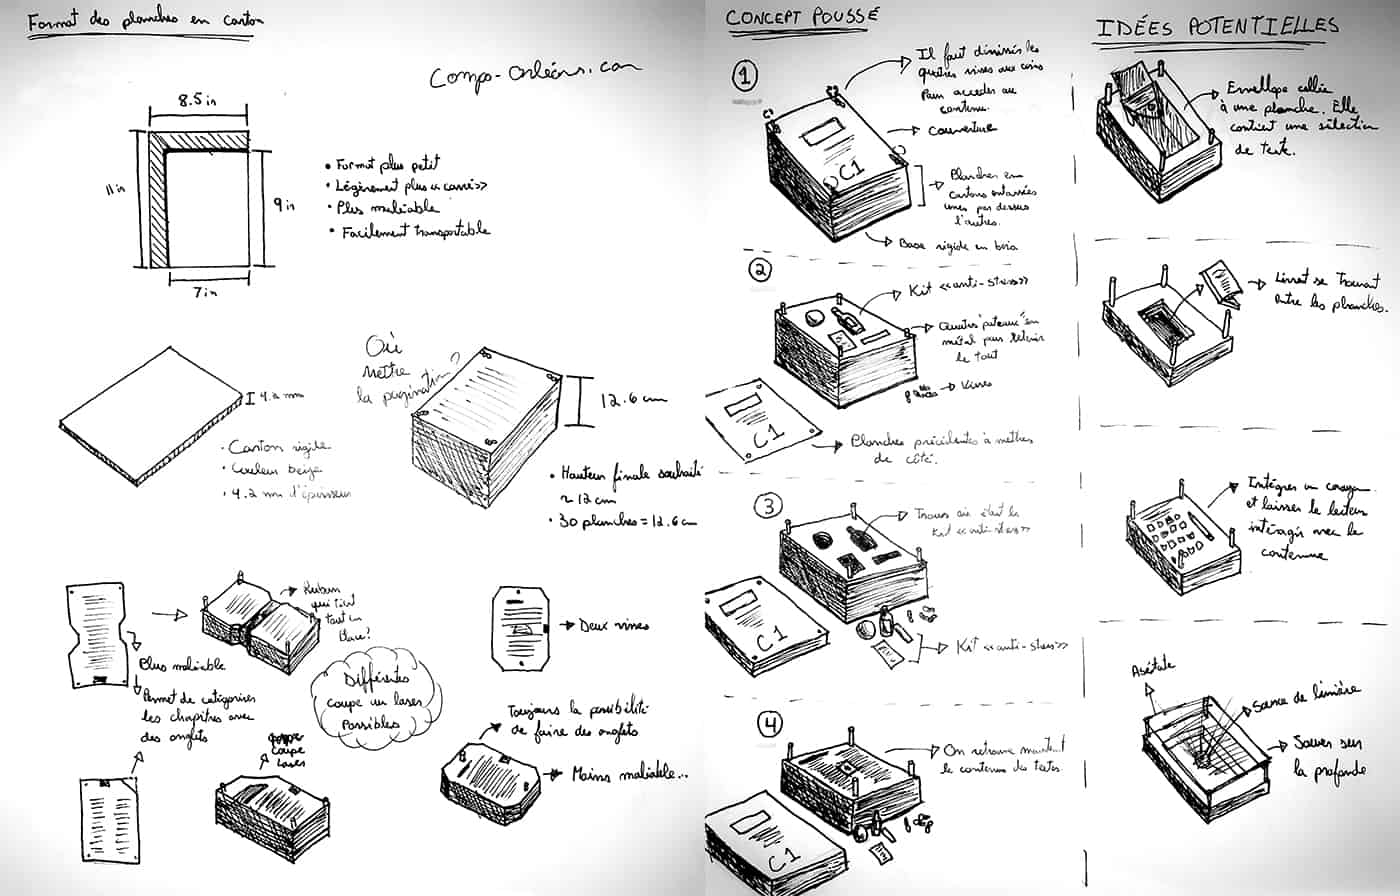 Format des planches en carton
8.5 in
11 in
9 in
7 in
• Format plus petit
• Légèrement plus « carré »
• Plus maléable
• Facilement transportable
4.2 mm
• Carton rigide
• Couleur beige
• 4.2 mm d'épaisseur
Où
mettre
la pagination?
12.6 cm
• Hauteur finale souhaité
≈ 12 cm
• 30 planches = 12.6 cm
Plus maléable
Permet de catégoriser
les chapitres avec
des onglets
Ruban
qui tient
tout en
place?
Différentes
coupe au laser
Possibles
coupe
laser
Deux vises
Toujours la possibilité
de faire des onglets
Moins maléable...
CONCEPT POUSSÉ
1
Il faut
les
quatres vises aux coins
Pour accéder au
contenu.
Couverture
C1
Planches en
cartons entassées
unes par dessus
l'autres.
Base rigide en bois
2
Kit « anti-stress »
Quatres "poteaux" en
métal pour retenir
le tout
Vises
C1
Planches précédentes à mettre
de côté.
3
Trous où était le
Kit « anti-stress »
C1
Kit « anti-stress »
4
On retrouve maintenant
le contenu des textes
C1
IDÉES POTENTIELLES
Envellope collée
à une planche. Elle
contient une sélection
de texte.
Livret se trouvant
entre les planches.
Intégrer un crayon
et laisser le lecteur
intéragir avec le
contenue
Asétate
Source de lumière
Jouer sur
la profonde